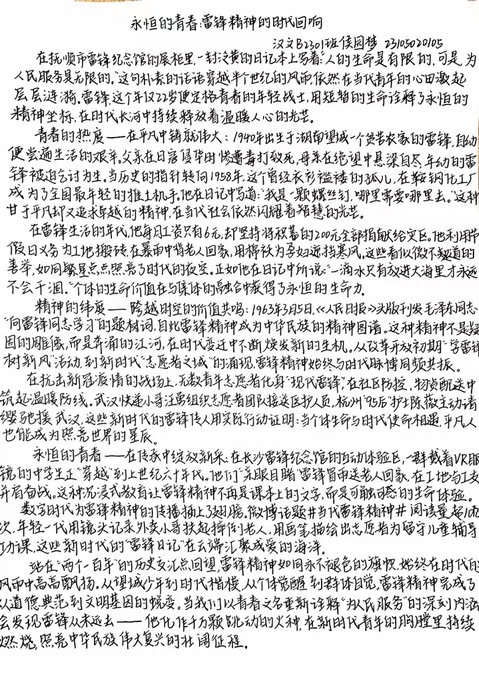 永恒的青春:雷锋精神的时代回响
汉文B2301班侯国梦 23105020105
在抚顺市雷锋纪念馆的展柜里,一封泛黄的日记本上写着:"人的生命是有限的,可是,为
人民服务是无限的。"这句朴素的话语穿越半个世纪的风雨依然在当代青年的心田激起
层层涟漪。雷锋,这个年仅22岁便定格青春的年轻战士,用短暂的生命诠释了永恒的
精神坐标,在时代长河中持续释放着温暖人心的光芒。
青春的热度——在平凡中铸就伟大:1940年出生于湖南望城一个贫苦农家的雷锋,自幼
便尝遍生活的艰辛。父亲在日寇侵华时惨遭毒打致死,母亲在绝望中悬梁自尽,年幼的雷
锋被迫乞讨为生。当历史的指针转向1958年,这个曾经衣衫褴褛的孤儿,在鞍钢化工厂
成为了全国最年轻的推土机手。他在日记中写道:"我是一颗螺丝钉,哪里需要哪里去。"这种
甘于平凡却又追求卓越的精神,在当代社会依然闪耀着智慧的光芒。
在雷锋生活的年代,他每月工资只有6元,却坚持将积蓄的200元全部捐献给灾区。他利用节
假日义务为工地搬砖,在暴雨中背老人回家,用棉被为孕妇遮挡寒风。这些看似微不足道的
善举,如同繁星点点照亮了时代的夜空。正如他在日记中所说:"一滴水只有放进大海里才永远
不会干涸。"个体的生命价值在与集体的融合中获得了永恒的生命力。
精神的纬度——跨越时空的价值共鸣:1963年3月5日,《人民日报》头版刊发毛泽东同志
"向雷锋同志学习"的题词,自此雷锋精神成为中华民族的精神图谱。这种精神不是凝
固的雕像,而是奔涌的江河,在时代变迁中不断焕发新的生机。从改革开放初期"学雷锋
树新风"活动,到新时代"志愿者之城"的涌现,雷锋精神始终与时代脉搏同频共振。
在抗击新冠疫情的战场上,无数青年志愿者化身"现代雷锋",在社区防控、物资配送中
筑起温暖防线。武汉快递小哥汪勇组织志愿者团队接送医护人员,杭州"95后"护士陈薇主动请
缨驰援武汉,这些新时代的雷锋传人用实际行动证明:当个体生命与时代使命相遇,平凡人
也能成为照亮世界的星辰。
永恒的青春——在传承中绽放新乐:在长沙雷锋纪念馆的互动体验区,一群戴着VR眼
镜的中学生正"穿越"到上世纪六十年代。他们"亲眼目睹"雷锋冒雨送老人回家,在工地与工友
并肩奋战。这种沉浸式教育让雷锋精神不再是课本上的文字,而是可触可感的生命体验。
数字时代为雷锋精神的传播插上了翅膀。微博话题#当代雷锋精神#阅读量超10亿
次,年轻一代用镜头记录外卖小哥扶起摔倒老人,用画笔描绘出志愿者为留守儿童辅导
功课,这些新时代的"雷锋日记"在云端汇聚成爱的海洋。
站在"两个一百年"的历史交汇点回望,雷锋精神如同永不褪色的旗帜,始终在时代的
风雨中高高飘扬。从望城少年到时代楷模,从个体觉醒到群体自觉,雷锋精神完成了
从道德典范到文明基因的蜕变。当我们以青春之名重新诠释"为人民服务"的深刻内涵,
会发现雷锋从未远去——他化作千万颗跳动的火种,在新时代青年的胸膛里持续
燃烧,照亮中华民族伟大复兴的壮阔征程。